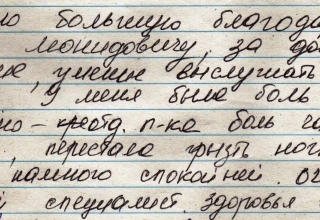 ю большую благода
монидовичу, за до
ие, умение выслушать
У меня была боль
но - отд. п-ка боль ча
, перестала грызть ног
намного спокойней. Оч
й специалист. Здоровья